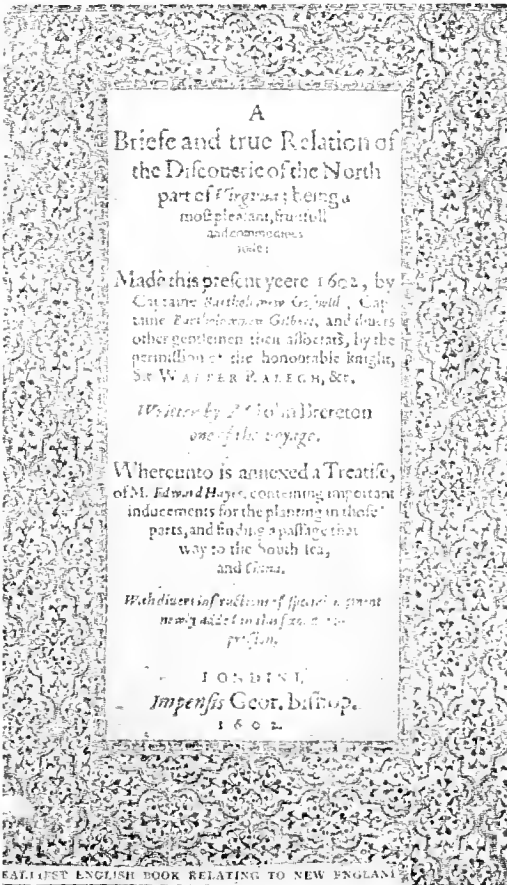 A
Briefe and true Relation of
the Diſcouerie of the North
part of Virginia; being a
moſt pleaſant, fruitfull
and commodious
ſoile:
Made this preſent yeere 1602, by
Captaine Bartholomew Goſnold, Cap-
taine Bartholomew Gilbert, and diuers
other gentlemen their aſſociats, by the
permiſſion of the honourable knight,
Sir WALTER RALEGH, &c.
Written by Mr. Iohn Brereton
one of the voyage.
Whereunto is annexed a Treatiſe,
of M. Edward Hayes, conteining important
inducements for the planting in thoſe
parts, and finding a paſſage that
way to the South ſea,
and China.
With diuers inſtructions of ſpeciall moment
newly added in this ſecond im-
preſſion.
LONDINI,
Impenſis Geor. Biſhop.
1602
EARLIEST ENGLISH BOOK RELATING TO NEW ENGLAND